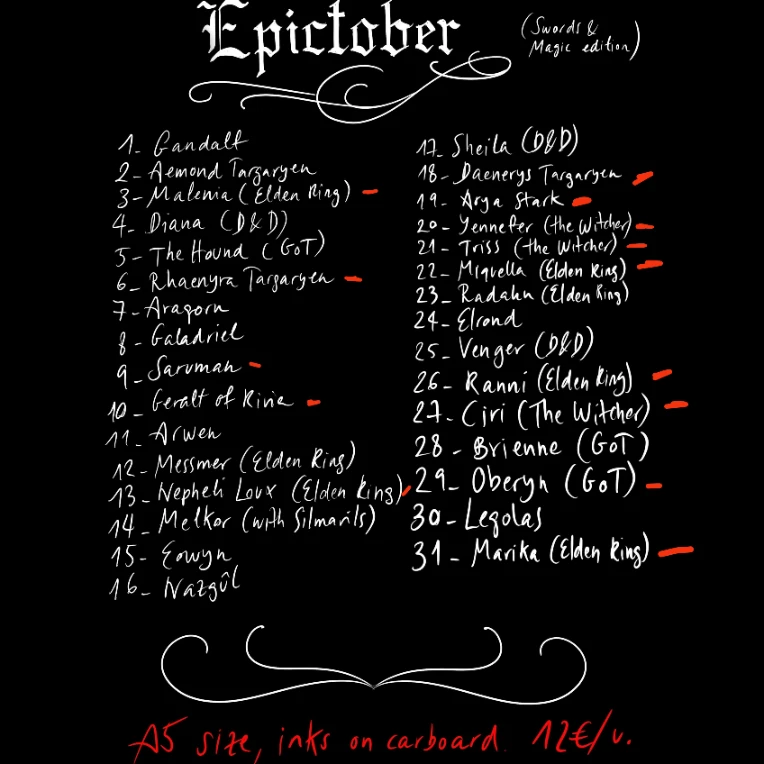 Epictober
(Swords &
Magic edition)
1_ Gandalf
2_ Aemond Targaryen
3_ Malenia (Elden Ring)
4_ Diana (D&D)
5_ The Hound (GoT)
6_ Rhaenyra Targaryen
7_ Aragorn
8_ Galadriel
9_ Saruman
10_ Geralt of Rivia
11_ Arwen
12_ Messmer (Elden Ring)
13_ Nepheli Loux (Elden Ring)
14_ Melkor (with Silmarils)
15_ Eowyn
16_ Nazgûl
17_ Sheila (D&D)
18_ Daenerys Targaryen
19_ Arya Stark
20_ Yennefer (the Witcher)
21_ Triss (the Witcher)
22_ Miquella (Elden Ring)
23_ Radahn (Elden Ring)
24_ Elrond
25_ Venger (D&D)
26_ Ranni (Elden Ring)
27_ Ciri (The Witcher)
28_ Brienne (GoT)
29_ Oberyn (GoT)
30_ Legolas
31_ Marika (Elden Ring)
A5 size, inks on carboard. 12€/u.